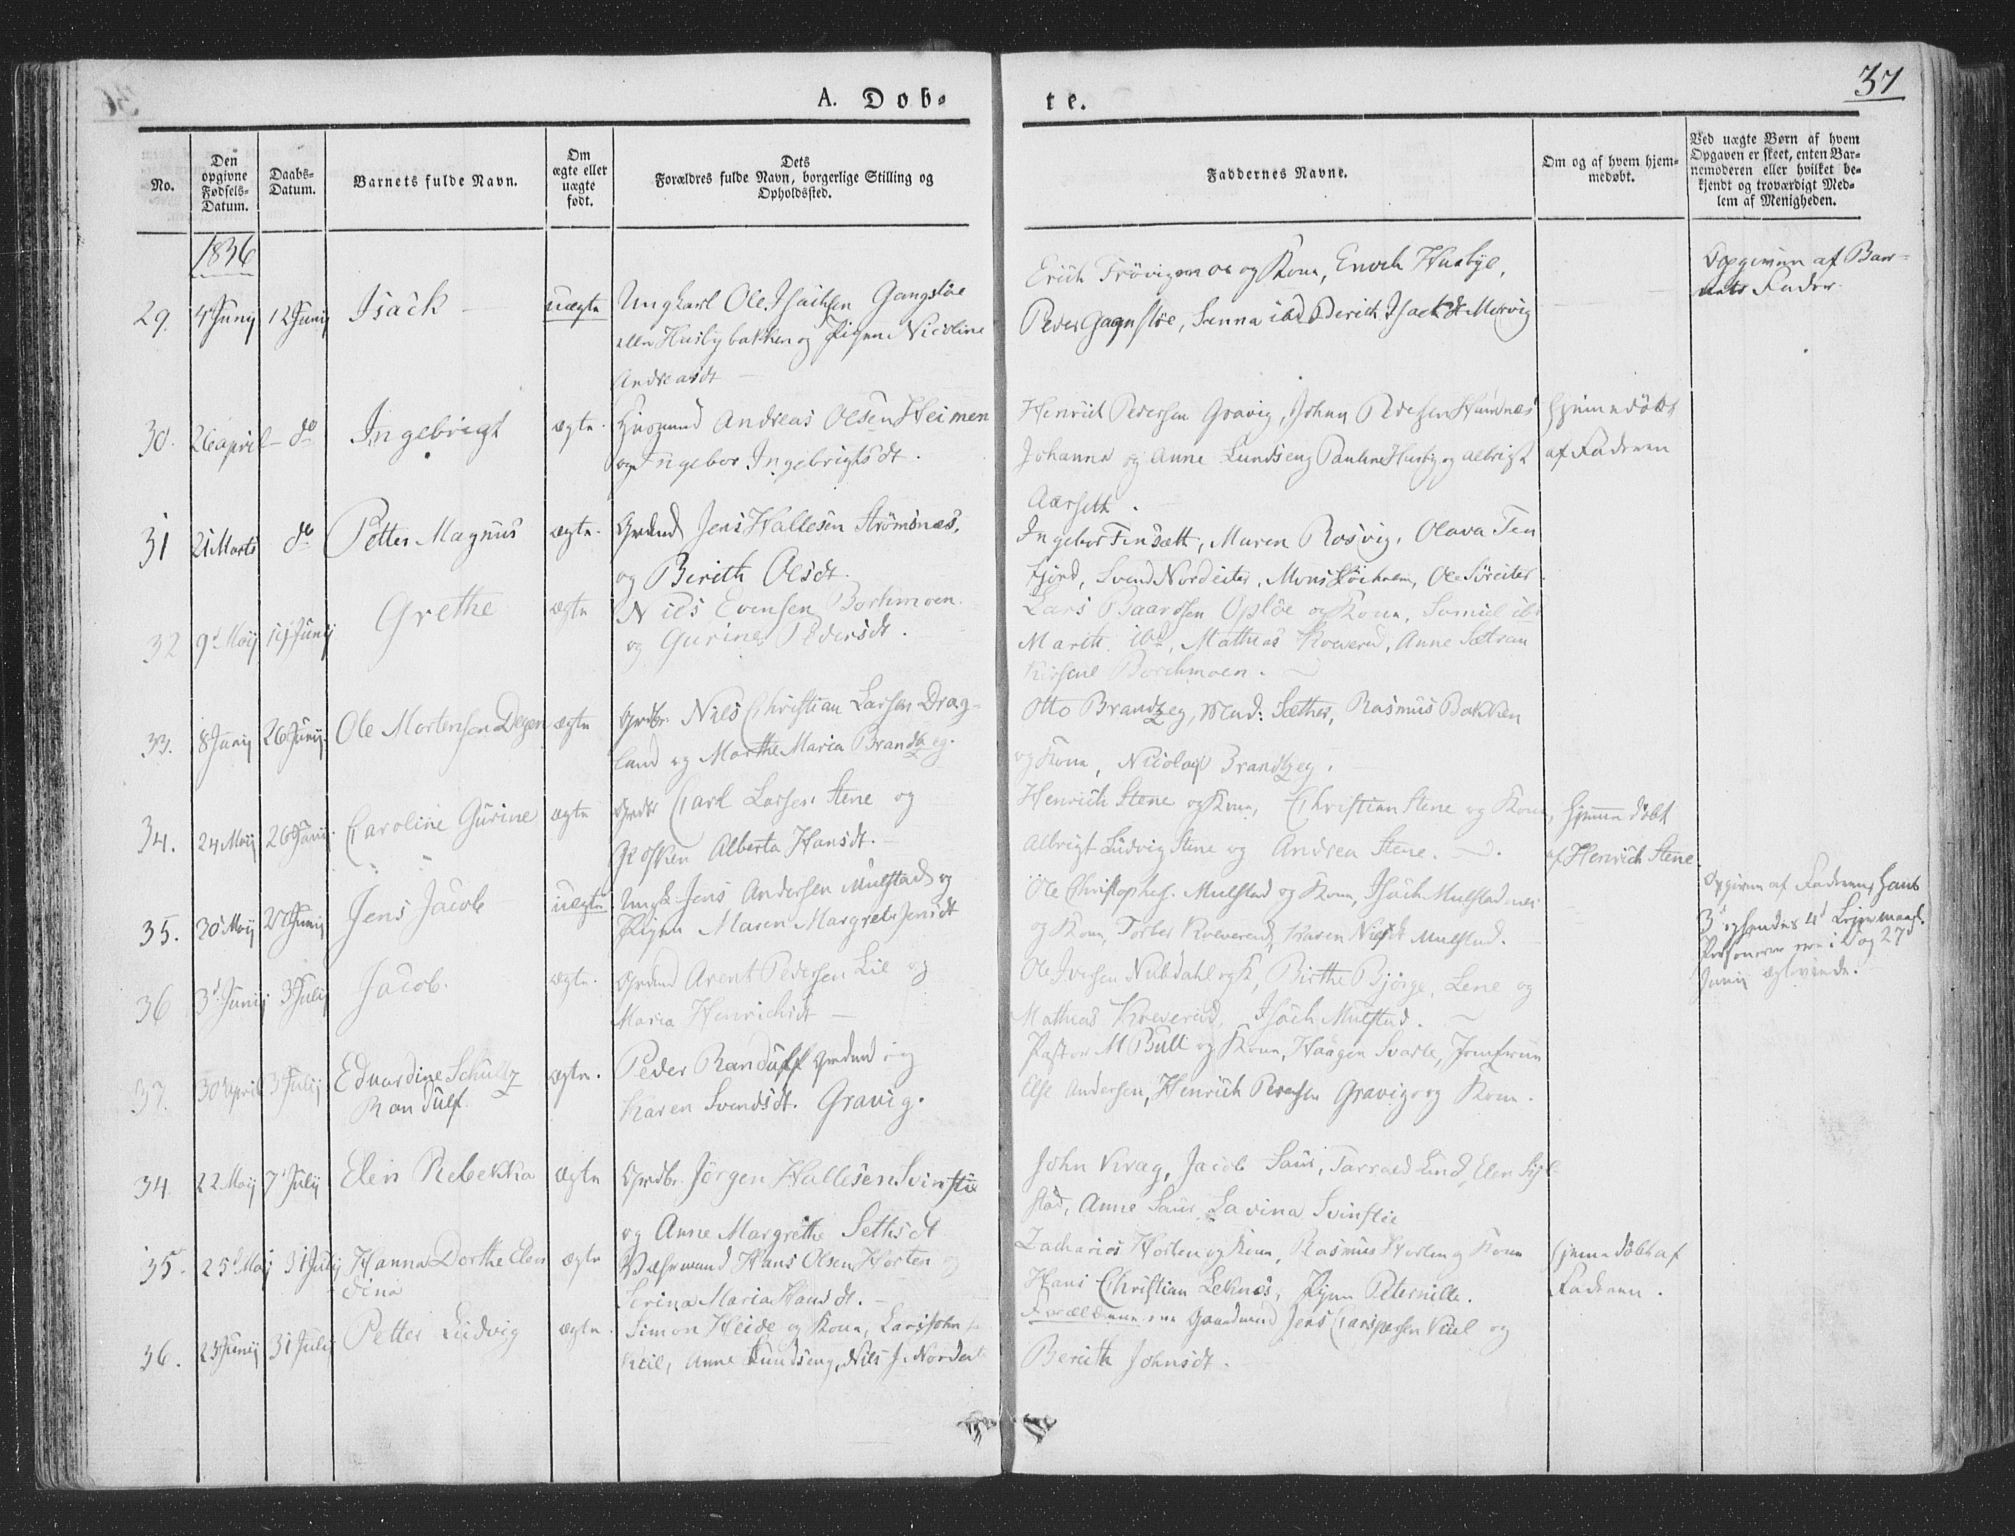 37
A. Døb- te.
No.
Den opgivne Fødsels-Datum.
Daabs-Datum.
Barnets fulde Navn.
Om ægte eller uægte født.
Dets Forældres fulde Navn, borgerlige Stilling og Opholdssted.
Faddernes Navne.
Om og af hvem hjemmedøbt.
Ved uægte Børn af hvem Opgaven er skeet, enten Barnemoderen eller hvilket bekjendt og troværdigt Medlem af Menigheden.
1836
29. 4 Juny 12 Juny Isack uægte Ungkarl Ole Isachsen Gangsløe
eller Husbybakken og Pigen Nicoline
Andreasdt
Erich Trøvig og Kone, Enoch Husbye,
Peder Gagnsløe, Berith Isachsdt Mervig
Opgivin af Barnets Fader.
30. 26 april do Ingebrigt ægte. Huusmand Andreas Olsen Heimen
og Ingebor Ingebrigtsdt.
Henrich Pedersen Gravig, Johan Pedersen
Johanna og Anne Lundseng Pauline Husby og Albrigt
Aarseth.
hjemmedøbt
af Faderen
31 21 Marts do Petter Magnus ægte. Grdmd Jens Hallesen Strømsnæs,
og Berith Olsdt.
Ingebor Finsæth, Maren Rosvig, Olava Ten
fjord, Svend Nordeiter, Mons, Ole Søreiter
32 9d Maij 19 Junij Grethe ægte Niels Evensen Borkmoen
og Gurine Pedersdt.
Lars Baardsen Opløe og Kone, Samuel ibd
Marth. ibd, Mathias Kveverud, Anne Sætran
Borchmoen.
33. 8 Junij 26 Junij. Ole Mortensen Degen ægte Grdbr. Niels Christian Larsen Drag-
land og Marthe Maria Brandtzeg.
Otto Brandtzeg, Mad: Sæther, Rasmus Bakken
og Kone, Nicolay Brandtzeg.
34. 24 Maij 26 Junij. Caroline Gurine ægte Grdbr Carl Larsen Stene og
Alberta Hansdt.
Henrich Stene og Kone, Christian Stene og Kone,
Albrigt Ludvig Stene og Andrea Stene.
hjemmedøbt
af Henrich Stene
35. 30 Maij 27 Junij Jens Jacob uægte Ungk. Jens Andersen Mulstad og
Pigen Maren Margrete Jensdt
Ole Christophers. Mulstad og Kone, Isach Mulstad
og Kone, Torber Kveverud, Karen Nielsdt Mulstad.
Opgiven af Faderen, hans
3d hendes 4d Leiermaal.
Personerne ere i Dag 27d
Junij ægteviede.
36 3d Junij 3 Julij Jacob. ægte. Grdmd Arent Pedersen Lie og
Maria Henrichsdt
Ole Iversen Nubdahl og K, Birthe Bjørge, Lene og
Mathias Kveverud, Isach Mulstad.
37. 30 April 3 Julij Eduardine Schultz
Randulf. ægte. Peder Randulff Grdmd og
Karen Svendsdt. Gravig.
Pastor M Bull og Kone, Haagen Svarte, Jomfruen
Else Andersen, Henrich Pedersen Gravig og Kone.
34 22 Maij 7 Julij Elen Rebekka ægte Grdbr. Jørgen Hallesen Svinsløe
og Anne Margrethe Sethsdt
John Krag, Jacob Saus, Tarrald Lund, Elen Sigl-
stad, Anne Saus, Lavina Svinsløe
35. 25d Maj 31 Julij Hanna Dorthe Elen
dina ægte Huusmand Hans Olsen Horten og
Serina Maria Hansdt.
Zacharias Horten og Kone, Rasmus Horten og Kone
Hans Christian Leknæs, Pigen Peternille.
hjemmedøbt af
Faderen.
36. 23 Junij 31 Julij Petter Ludvig ægte. Simon Heide og Kone, Lars John
Kiil, Anne Lundseng, Nils J. Nordeit
Forældrene ere Gaardmand Jens Caspersen Kiil og
Berith Johnsdt.